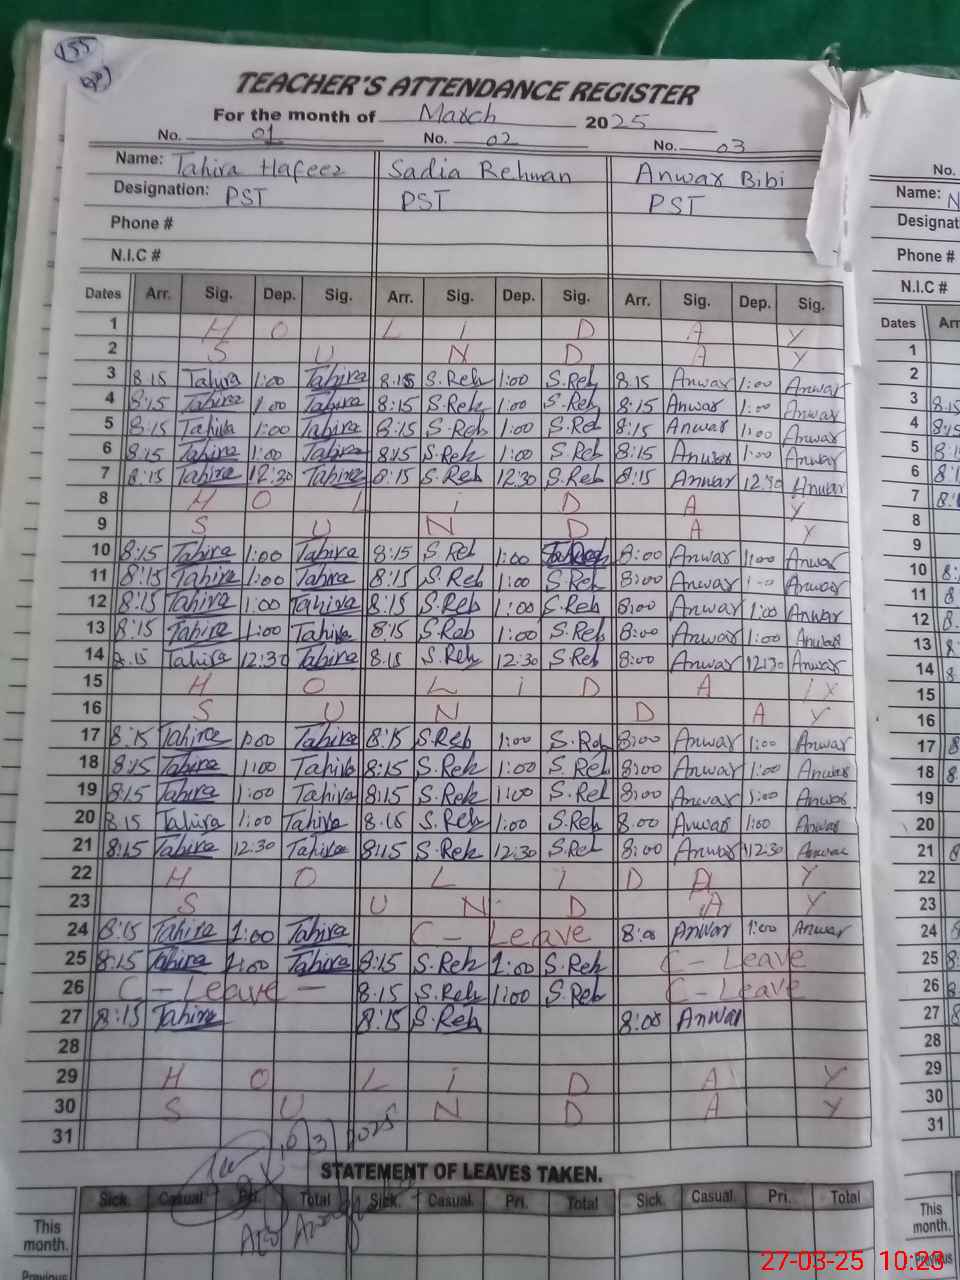 155
TEACHER'S ATTENDANCE REGISTER
For the month of March 2025
No. 01 No. 02 No. 03
Name: Tahira Hafeez Sadia Rehman Anwar Bibi
Designation: PST PST PST
Phone #
N.I.C #
Dates Arr. Sig. Dep. Sig. Arr. Sig. Dep. Sig. Arr. Sig. Dep. Sig.
1 H O L i D A Y
2 S U N D A Y
3 8.15 Tahira 1:00 Tahira 8.15 S.Reh 1:00 S.Reh 8.15 Anwar 1:00 Anwar
4 8:15 Tahira 1:00 Tahira 8:15 S.Reh 1:00 S.Reh 8:15 Anwar 1:00 Anwar
5 8:15 Tahira 1:00 Tahira 8:15 S.Reh 1:00 S.Reh 8:15 Anwar 1:00 Anwar
6 8:15 Tahira 1:00 Tahira 8:15 S.Reh 1:00 S.Reh 8:15 Anwar 1:00 Anwar
7 8:15 Tahira 12:30 Tahira 8:15 S.Reh 12:30 S.Reh 8:15 Anwar 12:30 Anwar
8 H O L i D A Y
9 S U N D A Y
10 8:15 Tahira 1:00 Tahira 8:15 S.Reh 1:00 8:00 Anwar 1:00 Anwar
11 8:15 Tahira 1:00 Tahira 8:15 S.Reh 1:00 S.Reh 8:00 Anwar 1:00 Anwar
12 8:15 Tahira 1:00 Tahira 8:15 S.Reh 1:00 S.Reh 8:00 Anwar 1:00 Anwar
13 8:15 Tahira 1:00 Tahira 8:15 S.Reh 1:00 S.Reh 8:00 Anwar 1:00 Anwar
14 8.15 Tahira 12:30 Tahira 8.15 S.Reh 12:30 S.Reh 8:00 Anwar 12:30 Anwar
15 H O L i D A Y
16 S U N D A Y
17 8:15 Tahira 1:00 Tahira 8:15 S.Reh 1:00 S.Reh 8:00 Anwar 1:00 Anwar
18 8:15 Tahira 1:00 Tahira 8:15 S.Reh 1:00 S.Reh 8:00 Anwar 1:00 Anwar
19 8:15 Tahira 1:00 Tahira 8:15 S.Reh 1:00 S.Reh 8:00 Anwar 1:00 Anwar
20 8.15 Tahira 1:00 Tahira 8.15 S.Reh 1:00 S.Reh 8.00 Anwar 1:00 Anwar
21 8:15 Tahira 12:30 Tahira 8:15 S.Reh 12:30 S.Reh 8:00 Anwar 12:30 Anwar
22 H O L I D A Y
23 S U N D A Y
24 8:15 Tahira 1:00 Tahira C - Leave 8:00 Anwar 1:00 Anwar
25 8:15 Tahira 1:00 Tahira 8:15 S.Reh 1:00 S.Reh C - Leave
26 C - Leave - 8:15 S.Reh 1:00 S.Reh C - Leave
27 8:15 Tahira 8:15 S.Reh 8:00 Anwar
28
29 H O L i D A Y
30 S U N D A Y
31
STATEMENT OF LEAVES TAKEN.
Sick. Casual. Pri. Total Sick. Casual. Pri. Total Sick. Casual. Pri. Total
This month.
Previous
No.
Name: N
Designat
Phone #
N.I.C #
Dates Arr
1
2
3 8:15
4 8:15
5
6
7
8
9
10
11
12
13
14
15
16
17
18
19
20
21
22
23
24
25
26
27
28
29
30
31
Sick.
This month.
Previous
27-03-25 10:23